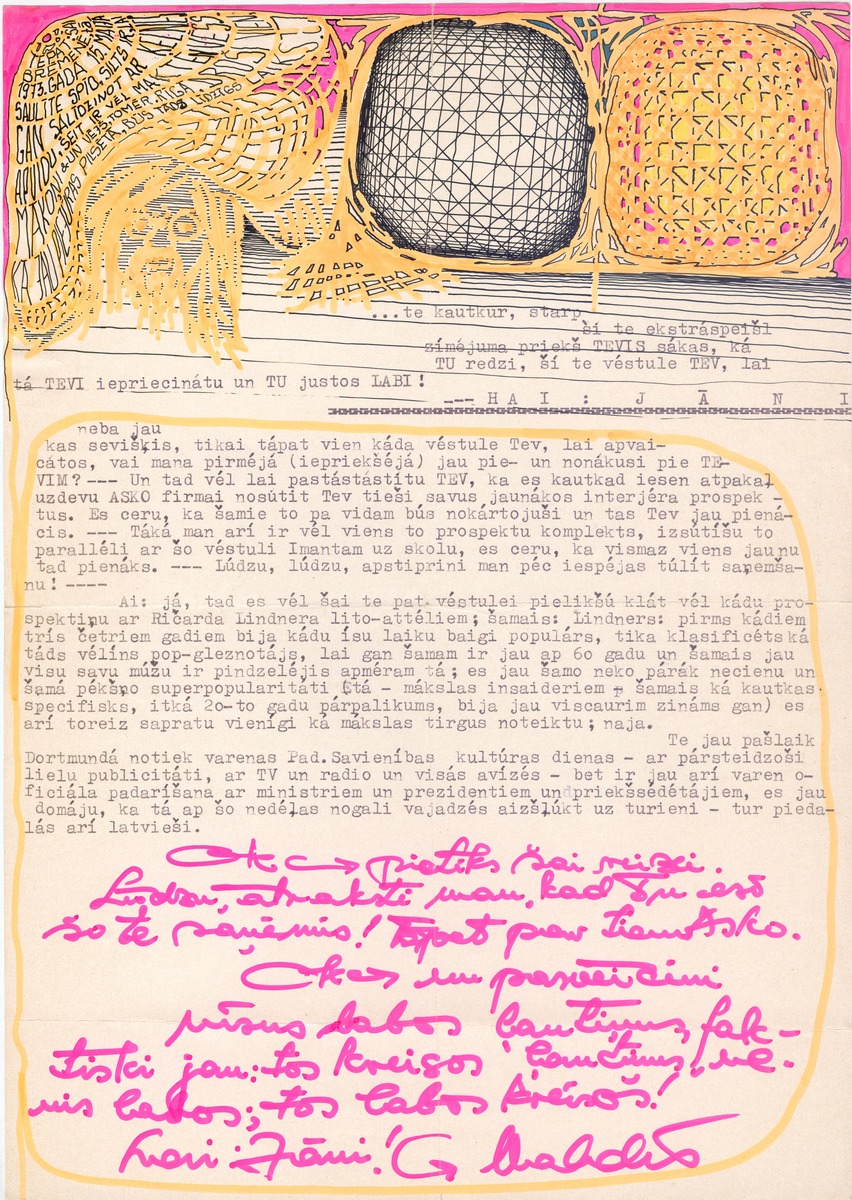 BREMENĒ
1973. GADA 15 MAIJĀ
SAULĪTE SPĪD, SILTS IR
GAN SALĪDZINOT AR
APVIDU: ŠEIT IR VĒL
KĀ JAU PIEJŪRAS PILSĒTA, BŪS TĀDS LĪDZĪGS
...te kautkur, starp
ší te ekstráspeišl
zímējuma priekš TEVIS sákas, ká
TU redzi, ší te véstule TEV, lai
tá TEVI iepriecinátu un TU justos LABI!
--- H A I : J Ā N I
neba jau
kas sevišķis, tikai tápat vien káda véstule Tev, lai apvai-
cátos, vai mana pirméjá (iepriekšéjá) jau pie- un nonákusi pie TE-
VIM? --- Un tad vél lai pastástástítu TEV, ka es kautkad iesen atpakaļ
uzdevu ASKO firmai nosútit Tev tieši savus jaunákos interjéra prospek -
tus. Es ceru, ka šamie to pa vidam bús nokártojuši un tas Tev jau piená-
cis. --- Táká man arí ir vél viens to prospektu komplekts, izsútíšu to
paralléli ar šo véstuli Imantam uz skolu, es ceru, ka vismaz viens jauņu
tad pienáks. --- Lúdzu, lúdzu, apstiprini man péc iespéjas túlít saņemša-
nu! ----
Ai: já, tad es vél šai te pat véstulei pielikšú klát vél kádu pro-
spektiņu ar Ričarda Lindnera lito-attéliem; šamais: Lindners: pirms kádiem
trís četriem gadiem bija kádu ísu laiku baigi populárs, tika klasificéts ká
táds vélíns pop-gleznotájs, lai gan šamam ir jau ap 6o gadu un šamais jau
visu savu múžu ir pindzeléjis apméram tá; es jau šamo neko párák necienu un
šamá pékšņo superpopularitáti (tá - mákslas insaideriem - šamais ká kautkas
specifisks, itká 2o-to gadu párpalikums, bija jau viscaurim zináms gan) es
arí toreiz sapratu vienígi ká mákslas tirgus noteiktu; naja.
Te jau pašlaik
Dortmundá notiek varenas Pad.Savienības kultúras dienas - ar pársteidzoši
lielu publicitáti, ar TV un radio un visás avízés - bet ir jau arí varen o-
ficiála padaríšana ar ministriem un prezidentiem undpriekšsédétájiem, es jau
domáju, ka tá ap šo nedéļas nogali vajadzés aizšļúkt uz turieni - tur pieda-
lás arí latvieši.
Ok → pietiks šai reizei.
Lūdzu, atraksti man, kad Tu esi
šo te saņēmis! Tāpat par Asko.
Ok → un pasveicini
visus labos ļautiņus, fak-
tiski jau: tos kreisos ļautiņus, ne-
mis labos; tos labos kreisos!
Jāni! → Valdis